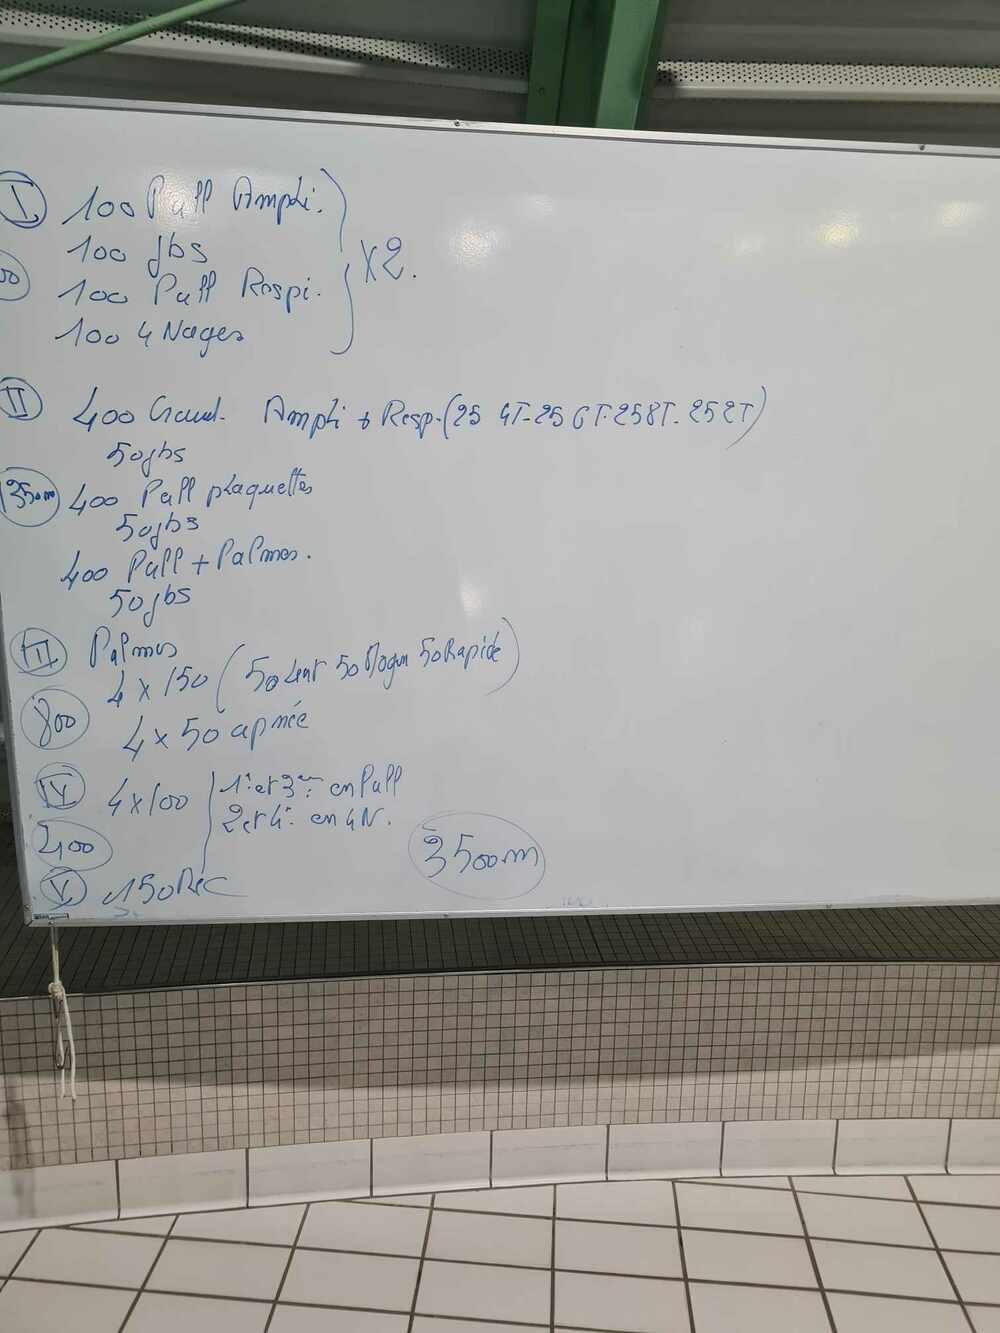 I 100 Pull Ampli.
100 jbs
100 Pull Respi.
100 4 Nages
X2.
00
II 400 Craul. Ampli + Resp.(25 4T-25 6T-25 8T-25 2T)
50 jbs
1350m 400 Pull plaquettes
50 jbs
400 Pull + Palmes.
50 jbs
III Palmes
4 x 150 (50 Lent 50 Moyen 50 Rapide)
800
4 x 50 apnée
IV 4 x 100 1er et 3em en Pull
2 et 4e en 4N.
400
V 150 Réc
3500m